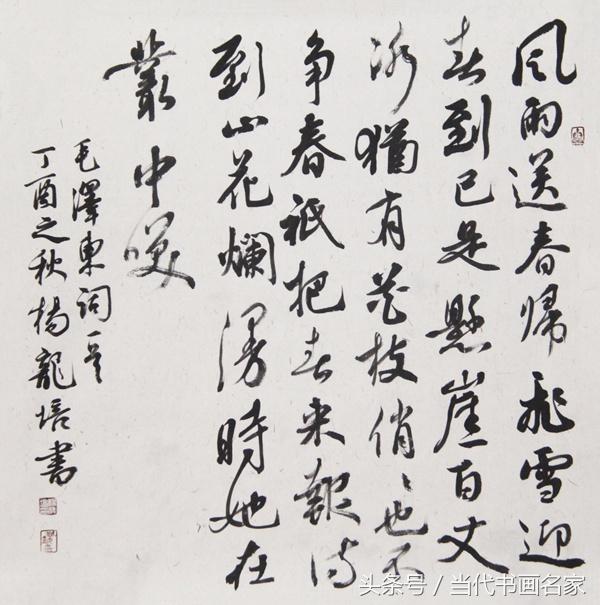 风雨送春歸飛雪迎
春到已是懸崖百丈
冰猶有花枝俏俏也不
争春祇把春来報待
到山花爛漫時她在
叢中咲
毛澤東詞一首
丁酉之秋楊龍培書
头条号 / 当代书画名家